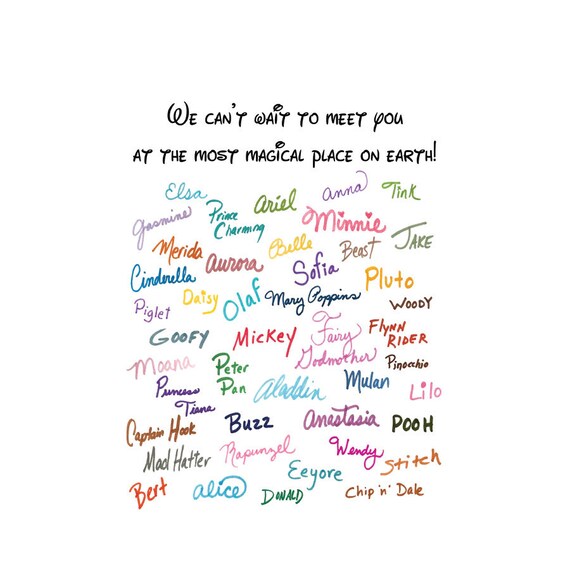 We can't wait to meet you
at the most magical place on earth!
Elsa Ariel Anna Tink
Jasmine Prince Charming Minnie
Merida Aurora Belle Beast Jake
Cinderella Sofia Pluto
Piglet Daisy Olaf Mary Poppins Woody
Goofy Mickey Fairy Godmother Flynn Rider
Moana Peter Pan Pinocchio
Princess Tiana Aladdin Mulan Lilo
Captain Hook Buzz Anastasia Pooh
Mad Hatter Rapunzel Wendy Stitch
Bert Alice Donald Eeyore Chip 'n' Dale